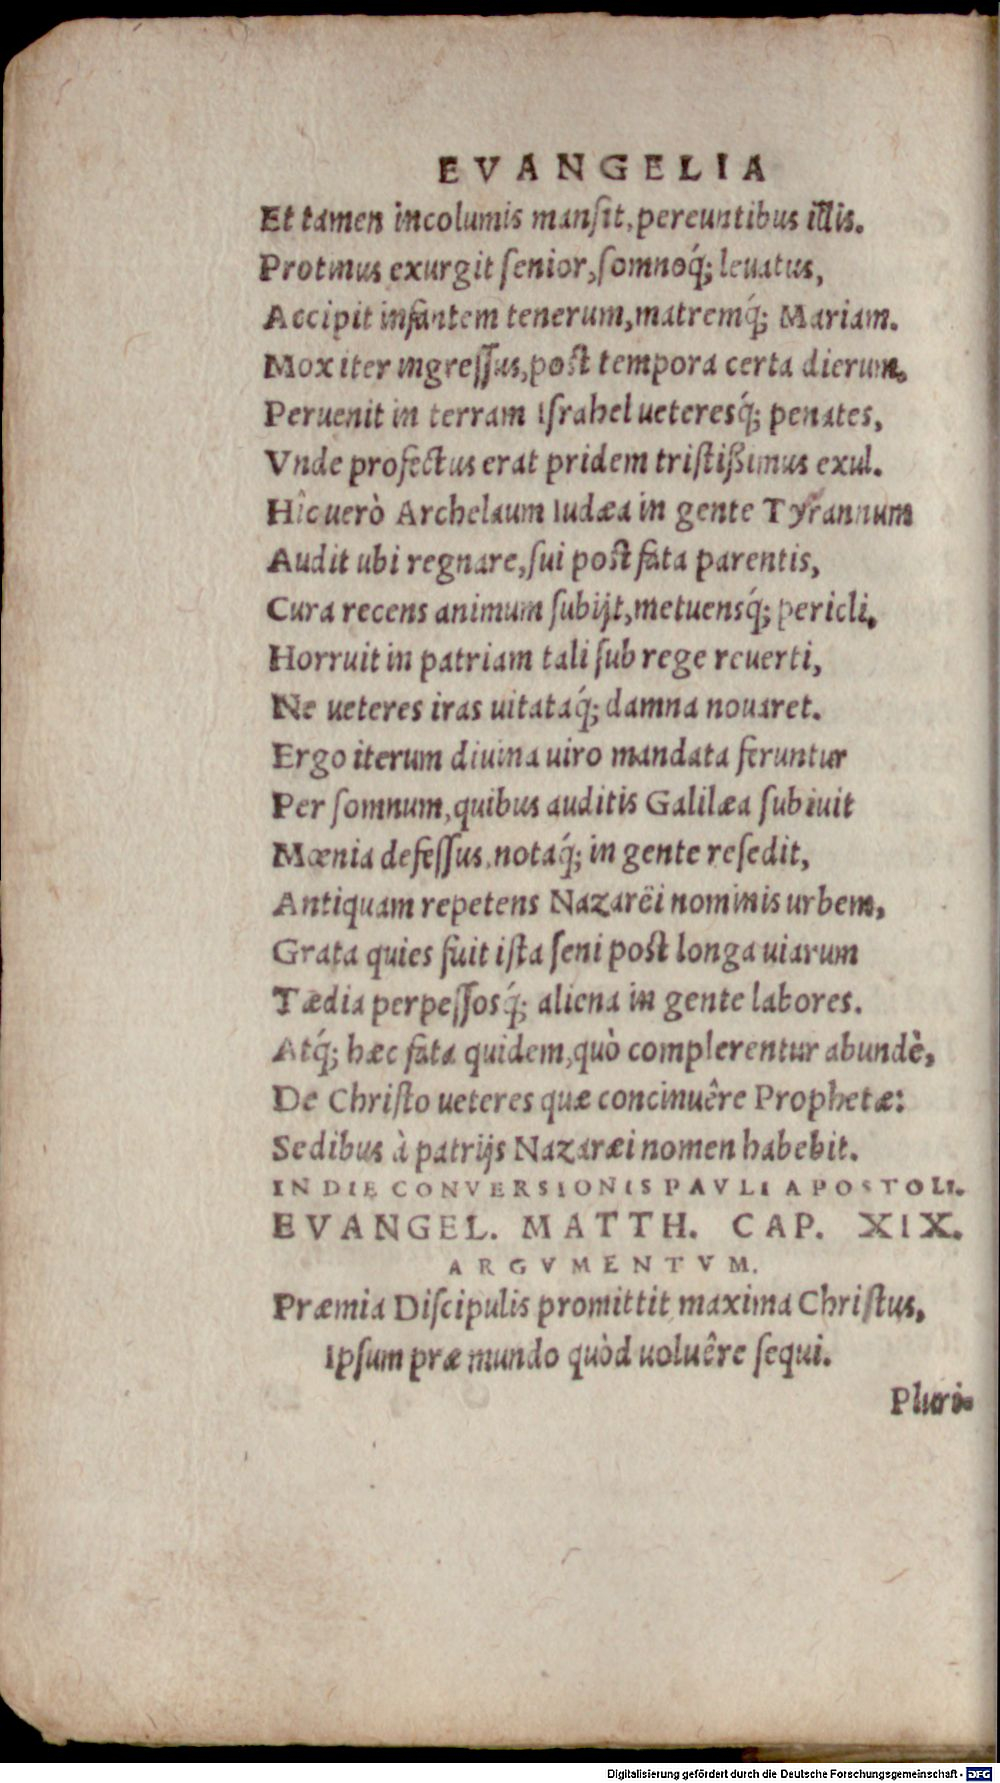 EVANGELIA
Et tamen incolumis manſit, pereuntibus illis.
Protinus exurgit ſenior, ſomnoq́; leuatus,
Accipit infantem tenerum, matremq́; Mariam.
Mox iter ingreſſus, poſt tempora certa dierum,
Peruenit in terram Iſrahel ueteresq́; penates,
Vnde profectus erat pridem triſtißimus exul.
Hîc uerò Archelaum Iudæa in gente Tyrannum
Audit ubi regnare, ſui poſt fata parentis,
Cura recens animum ſubijt, metuensq́; pericli,
Horruit in patriam tali ſub rege reuerti,
Ne ueteres iras uitataq́; damna nouaret.
Ergo iterum diuina uiro mandata feruntur
Per ſomnum, quibus auditis Galilæa ſubiuit
Mœnia defeſſus, notaq́; in gente reſedit,
Antiquam repetens Nazarëi nominis urbem,
Grata quies fuit iſta ſeni poſt longa uiarum
Tædia perpeſſosq́; aliena in gente labores.
Atq́; hæc fata quidem, quò complerentur abundè,
De Chriſto ueteres quæ concinuêre Prophetæ:
Sedibus à patrijs Nazaræi nomen habebit.
IN DIE CONVERSIONIS PAVLI APOSTOLI.
EVANGEL. MATTH. CAP. XIX.
ARGVMENTVM.
Præmia Diſcipulis promittit maxima Chriſtus,
Ipſum præ mundo quòd uoluêre ſequi.
Pluri-
Digitalisierung gefördert durch die Deutsche Forschungsgemeinschaft - DFG